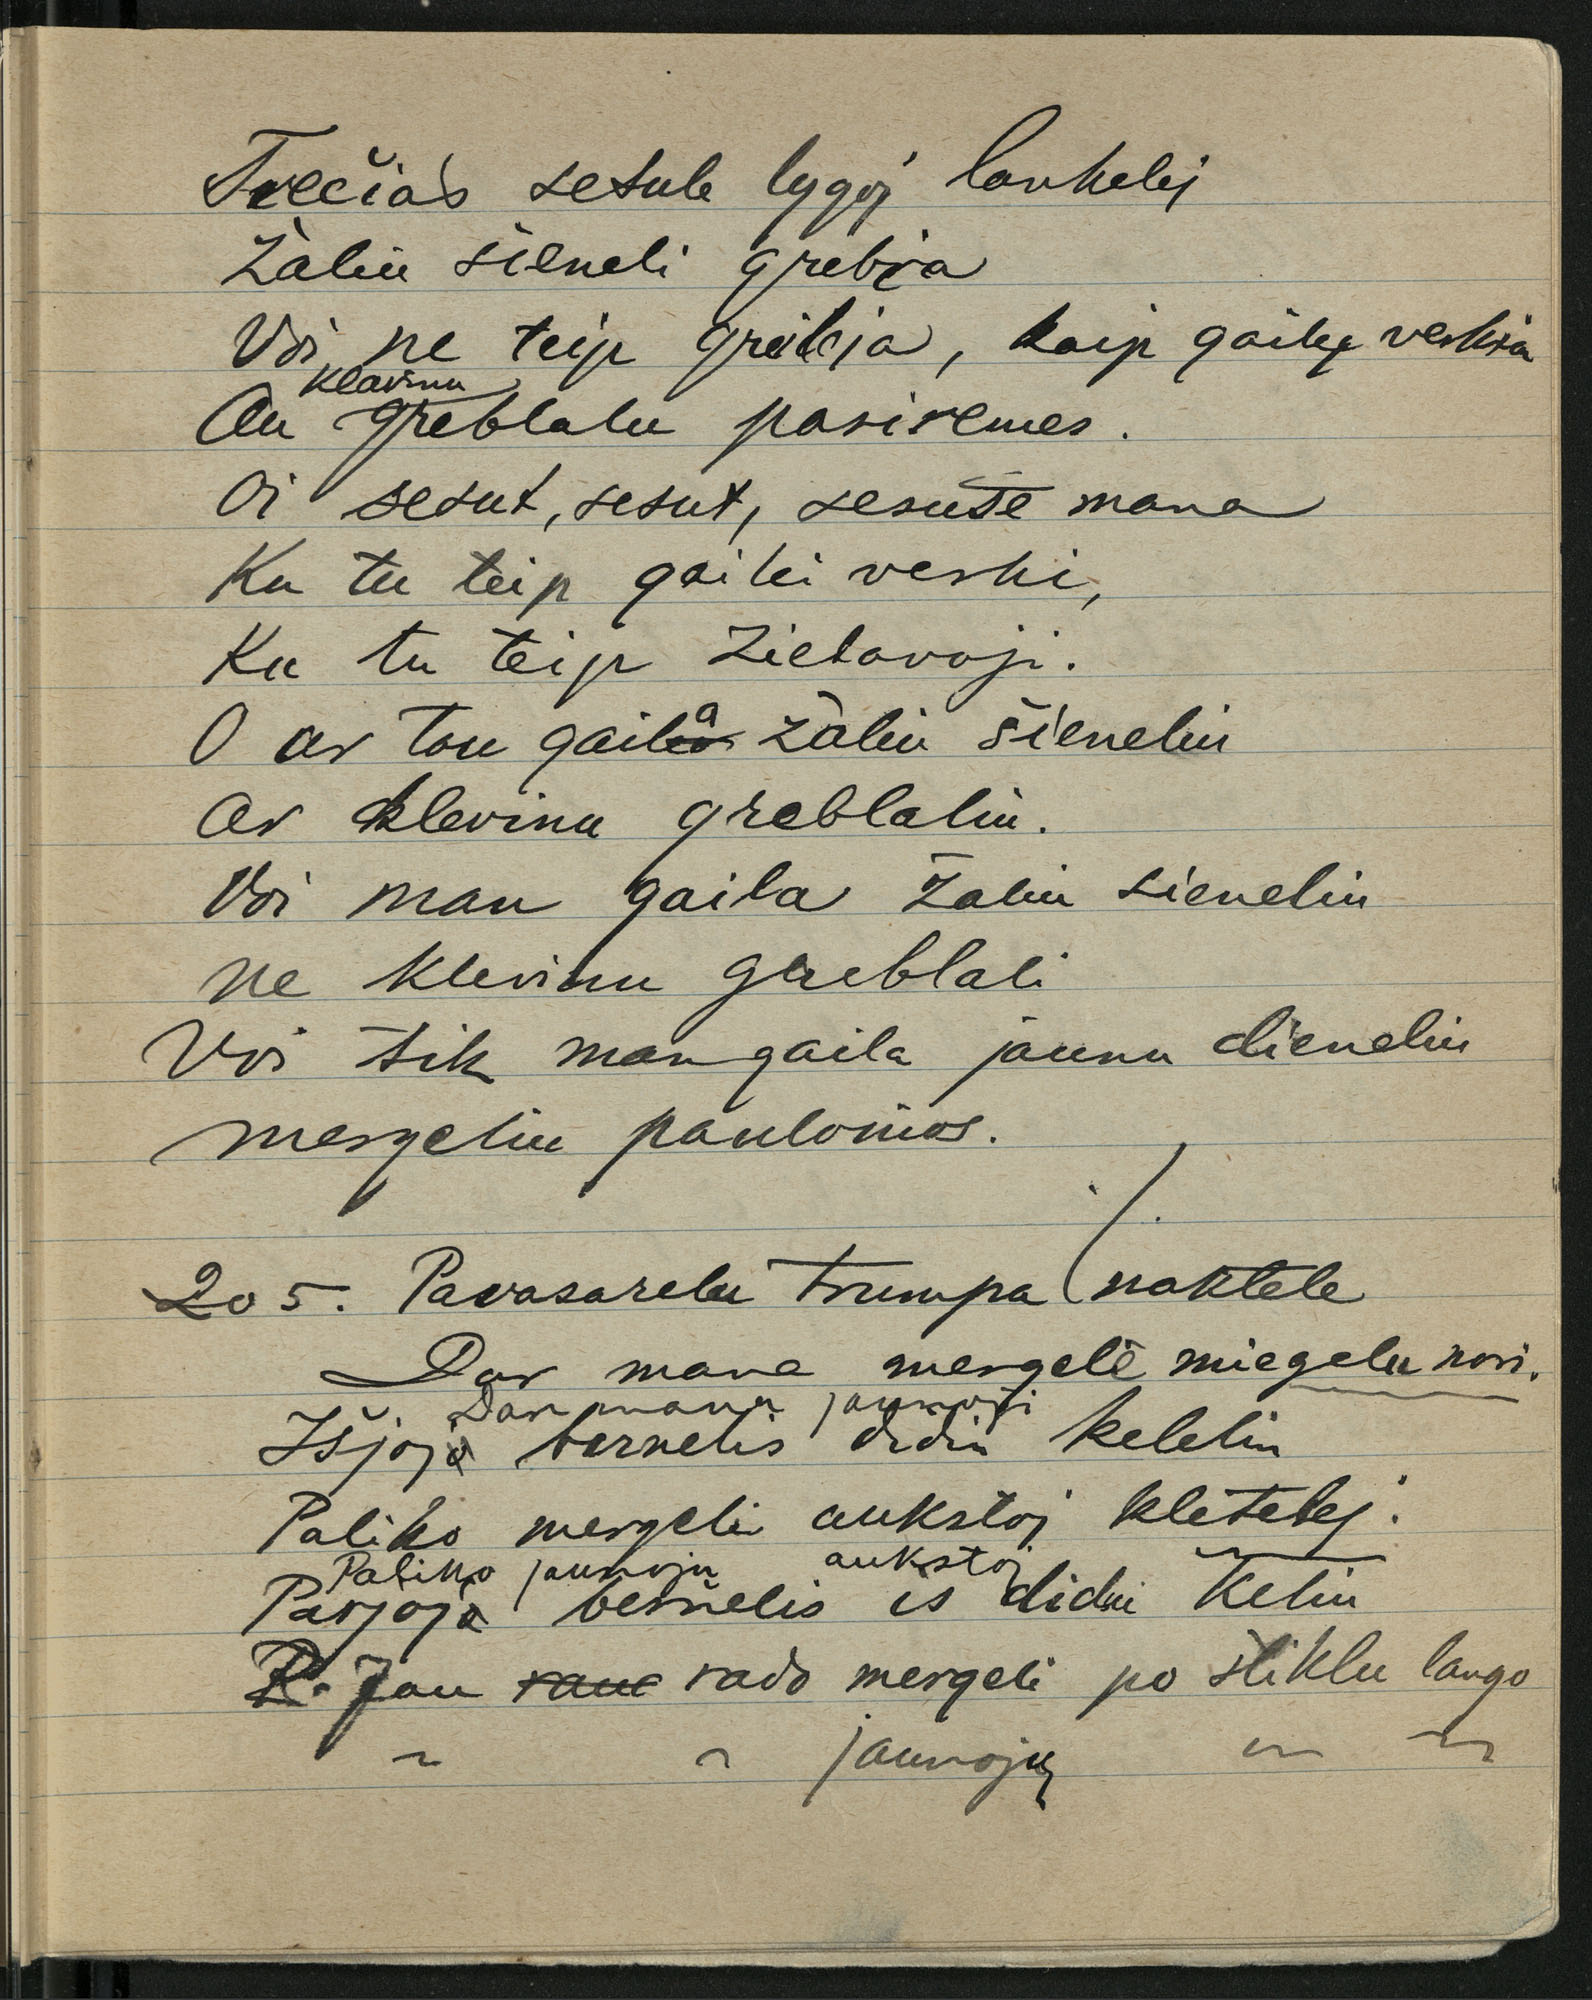 Trečias sesule lygoj lankelej
Žaliu šieneli grebia
Voi ne teip grėbja, kaip gailej verkia
klavinu
An greblalu pasiremes.
Oi sesut, sesut, sesute mana
Ku tu teip gailei verki,
Ku tu teip zielavoji.
O ar tau gaila žaliu šieneliu
Ar klevinu greblaliu.
Voi man gaila žaliu sieneliu
ne klevinu greblali
Voi tik man gaila jaunu dieneliu
mergeliu paulonios.
205. Pavasarelu trumpa naktele
Dar mana mergelė miegelu nori.
Dar mana jaunoji
Išjoja bernelis didiu keleliu
Paliko mergeli aukstoj kletelej.
Paliko jaunoju aukstoj
Parjoja bernelis is didiu keliu
Jau rado mergeli po stiklu lango
" " jaunoju " "